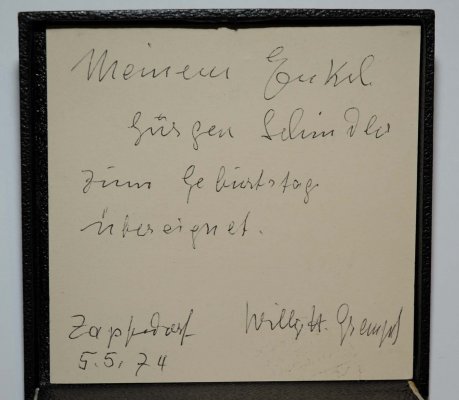 Meinem Enkel
Jürgen Schindler
zum Geburtstag
übereignet.
Zappendorf Willy H.
5.5.74